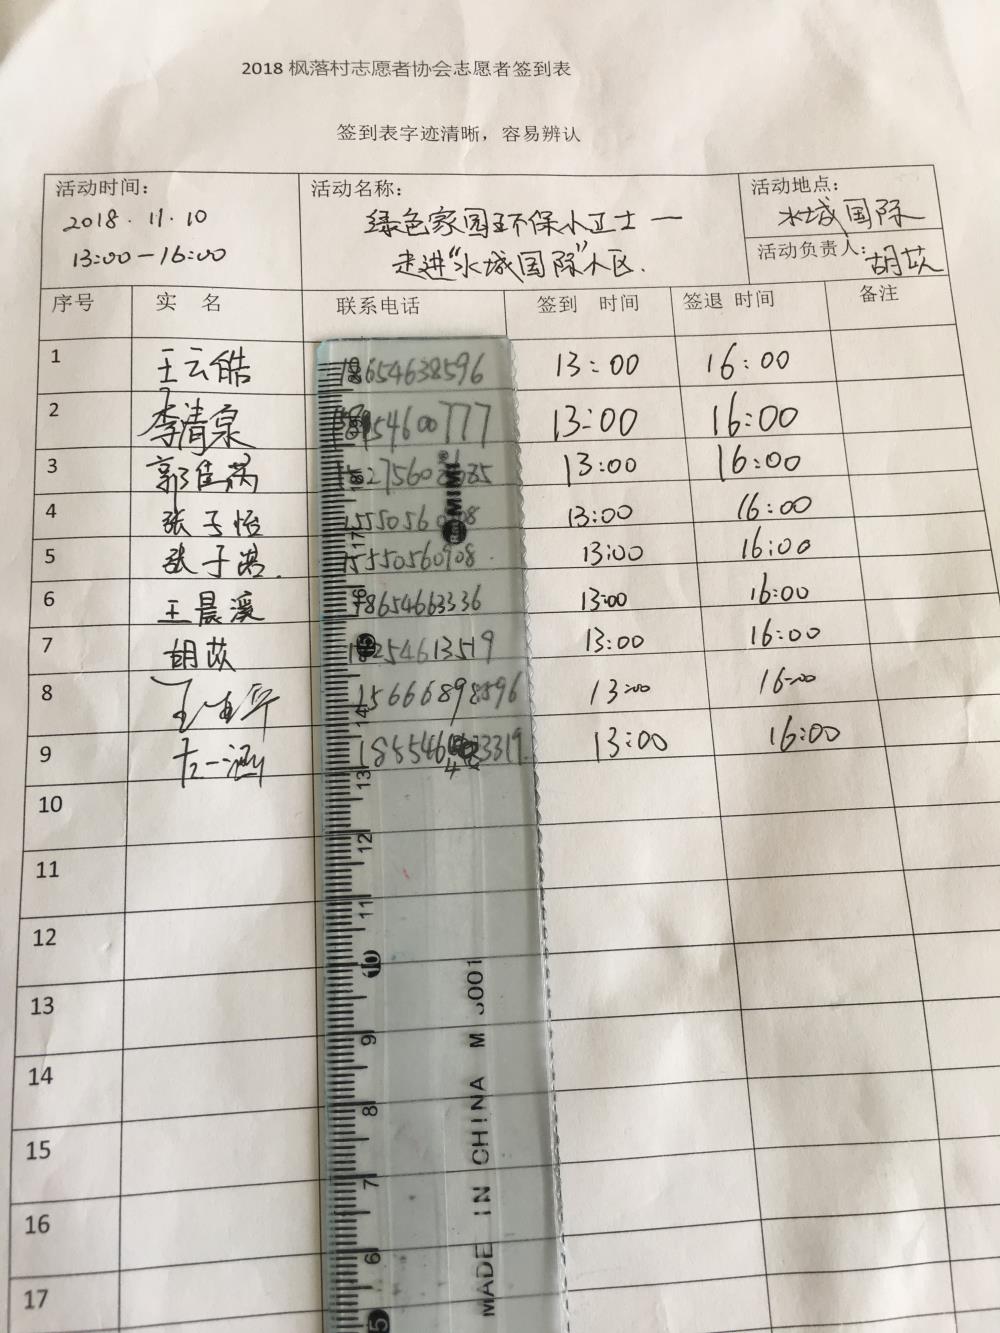 2018 枫落村志愿者协会志愿者签到表
签到表字迹清晰，容易辨认
活动时间：
2018.11.10
13:00-16:00
活动名称：
绿色家园环保小卫士一
走进"水城国际"小区.
活动地点：
水城国际
活动负责人：胡苡
序号 实 名 联系电话 签到 时间 签退 时间 备注
1 王云皓 18654638596 13:00 16:00
2 李清泉 4600777 13:00 16:00
3 郭佳 13:00 16:00
4 张子怡 13:00 16:00
5 张子 15550560908 13:00 16:00
6 王晨溪 18654663336 13:00 16:00
7 胡苡 254613519 13:00 16:00
8 15666898896 13:00 16:00
9 左一涵 13:00 16:00
10
11
12
13
14
15
16
17
18
17
16
15
14
13
12
11
10
9
8
7
6
5
MIMI
MADE IN CHINA